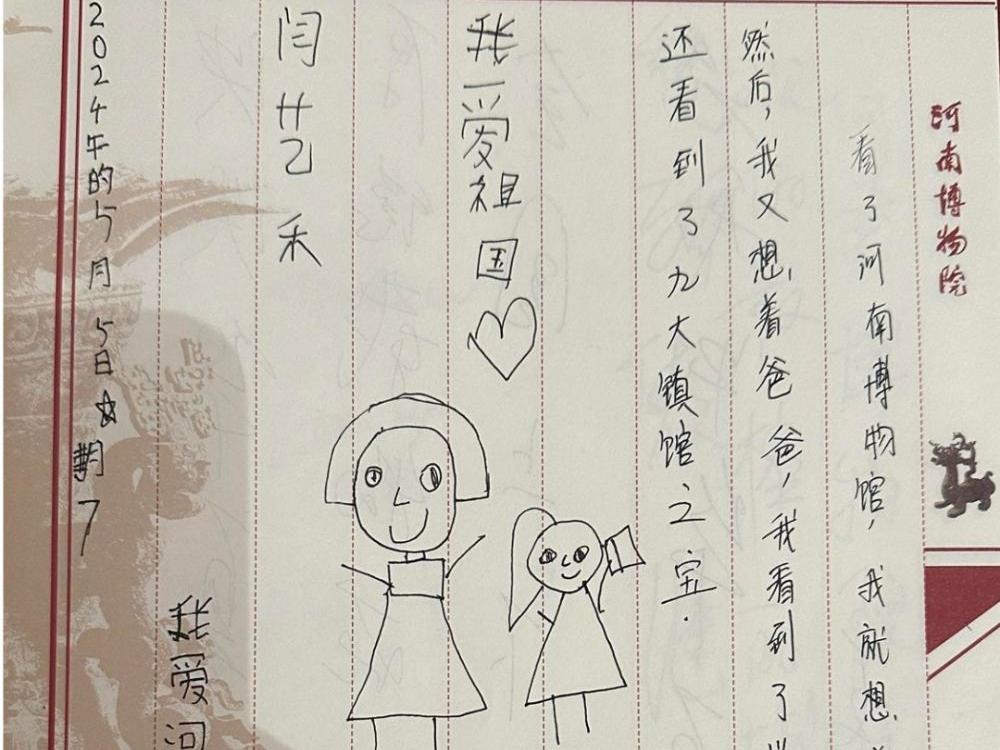 河南博物院
看了河南博物馆，我就想
然后，我又想着爸爸，我看到了
还看到了九大镇馆之宝.
我爱祖国
闫艺禾
我爱河
2024午的5月5日☆期7